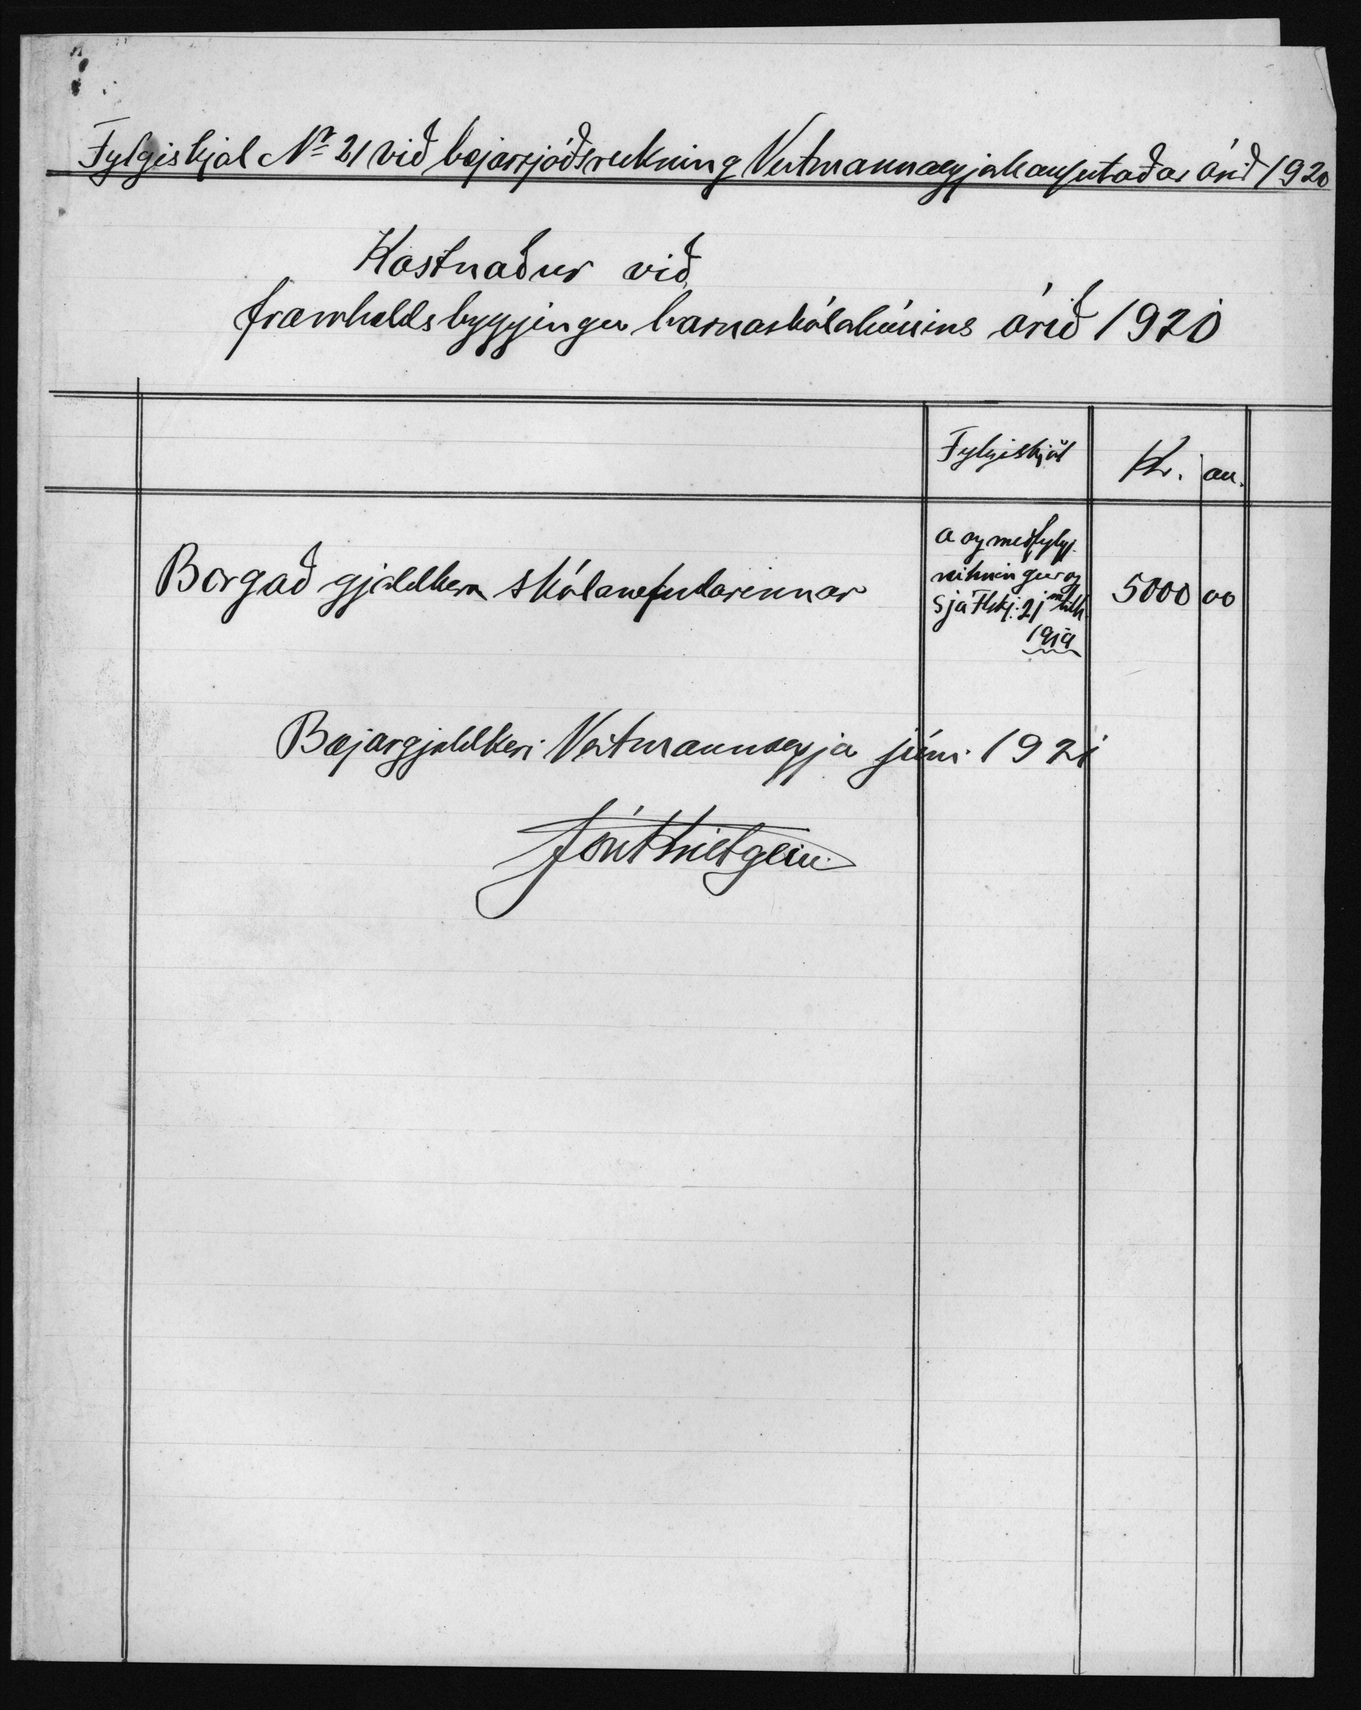 Fylgiskjal Nr 21 við bæjarsjóðsreikning Vestmannaeyjakaupstaðar árið 1920
Kostnaður við
framhaldsbyggingu barnaskólahússins árið 1920
Fylgiskjöl Kr. au.
Borgað gjaldkera skólanefndarinnar
a og meðfylgj.
reikningur og
sjá Flskj. 21
1919
5000 00
Bæjargjaldkeri Vestmannaeyja júni 1921